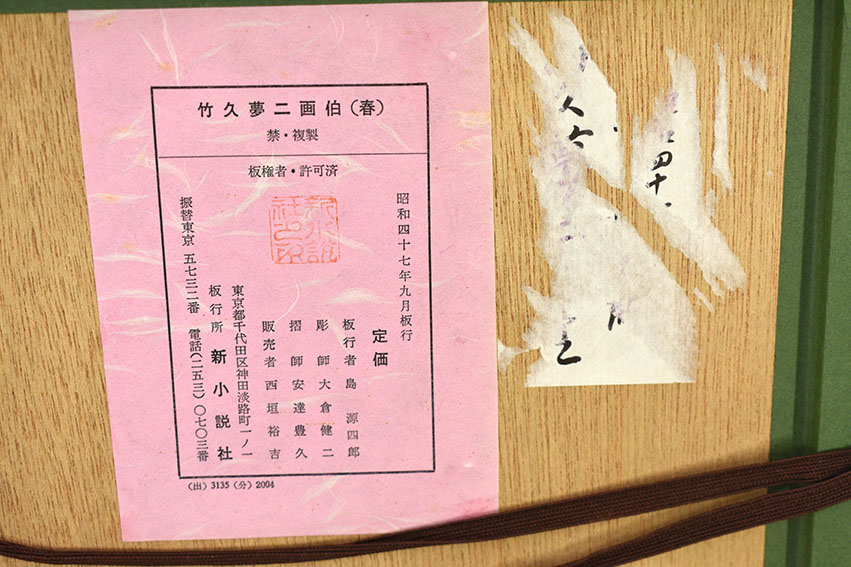 竹久夢二画伯（春）
禁・複製
板権者・許可済
昭和四十七年九月板行
定価
板行者 島 源四郎
彫師 大倉健二
摺師 安達豊久
販売者 西垣裕吉
東京都千代田区神田淡路町一ノ一
板行所 新小説社
振替東京 五七三二番 電話(二五三)〇七〇三番
(出) 3135 (分) 2004
四十